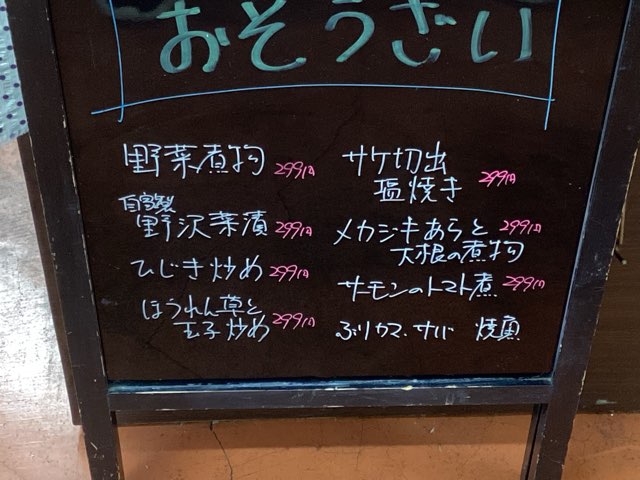 おそうざい
野菜煮物 299円
自家製
野沢菜漬 299円
ひじき炒め 299円
ほうれん草と
玉子炒め 299円
サケ切出
塩焼き 299円
メカジキあらと 299円
大根の煮物
サーモンのトマト煮 299円
ぶりカマ、サバ 焼魚